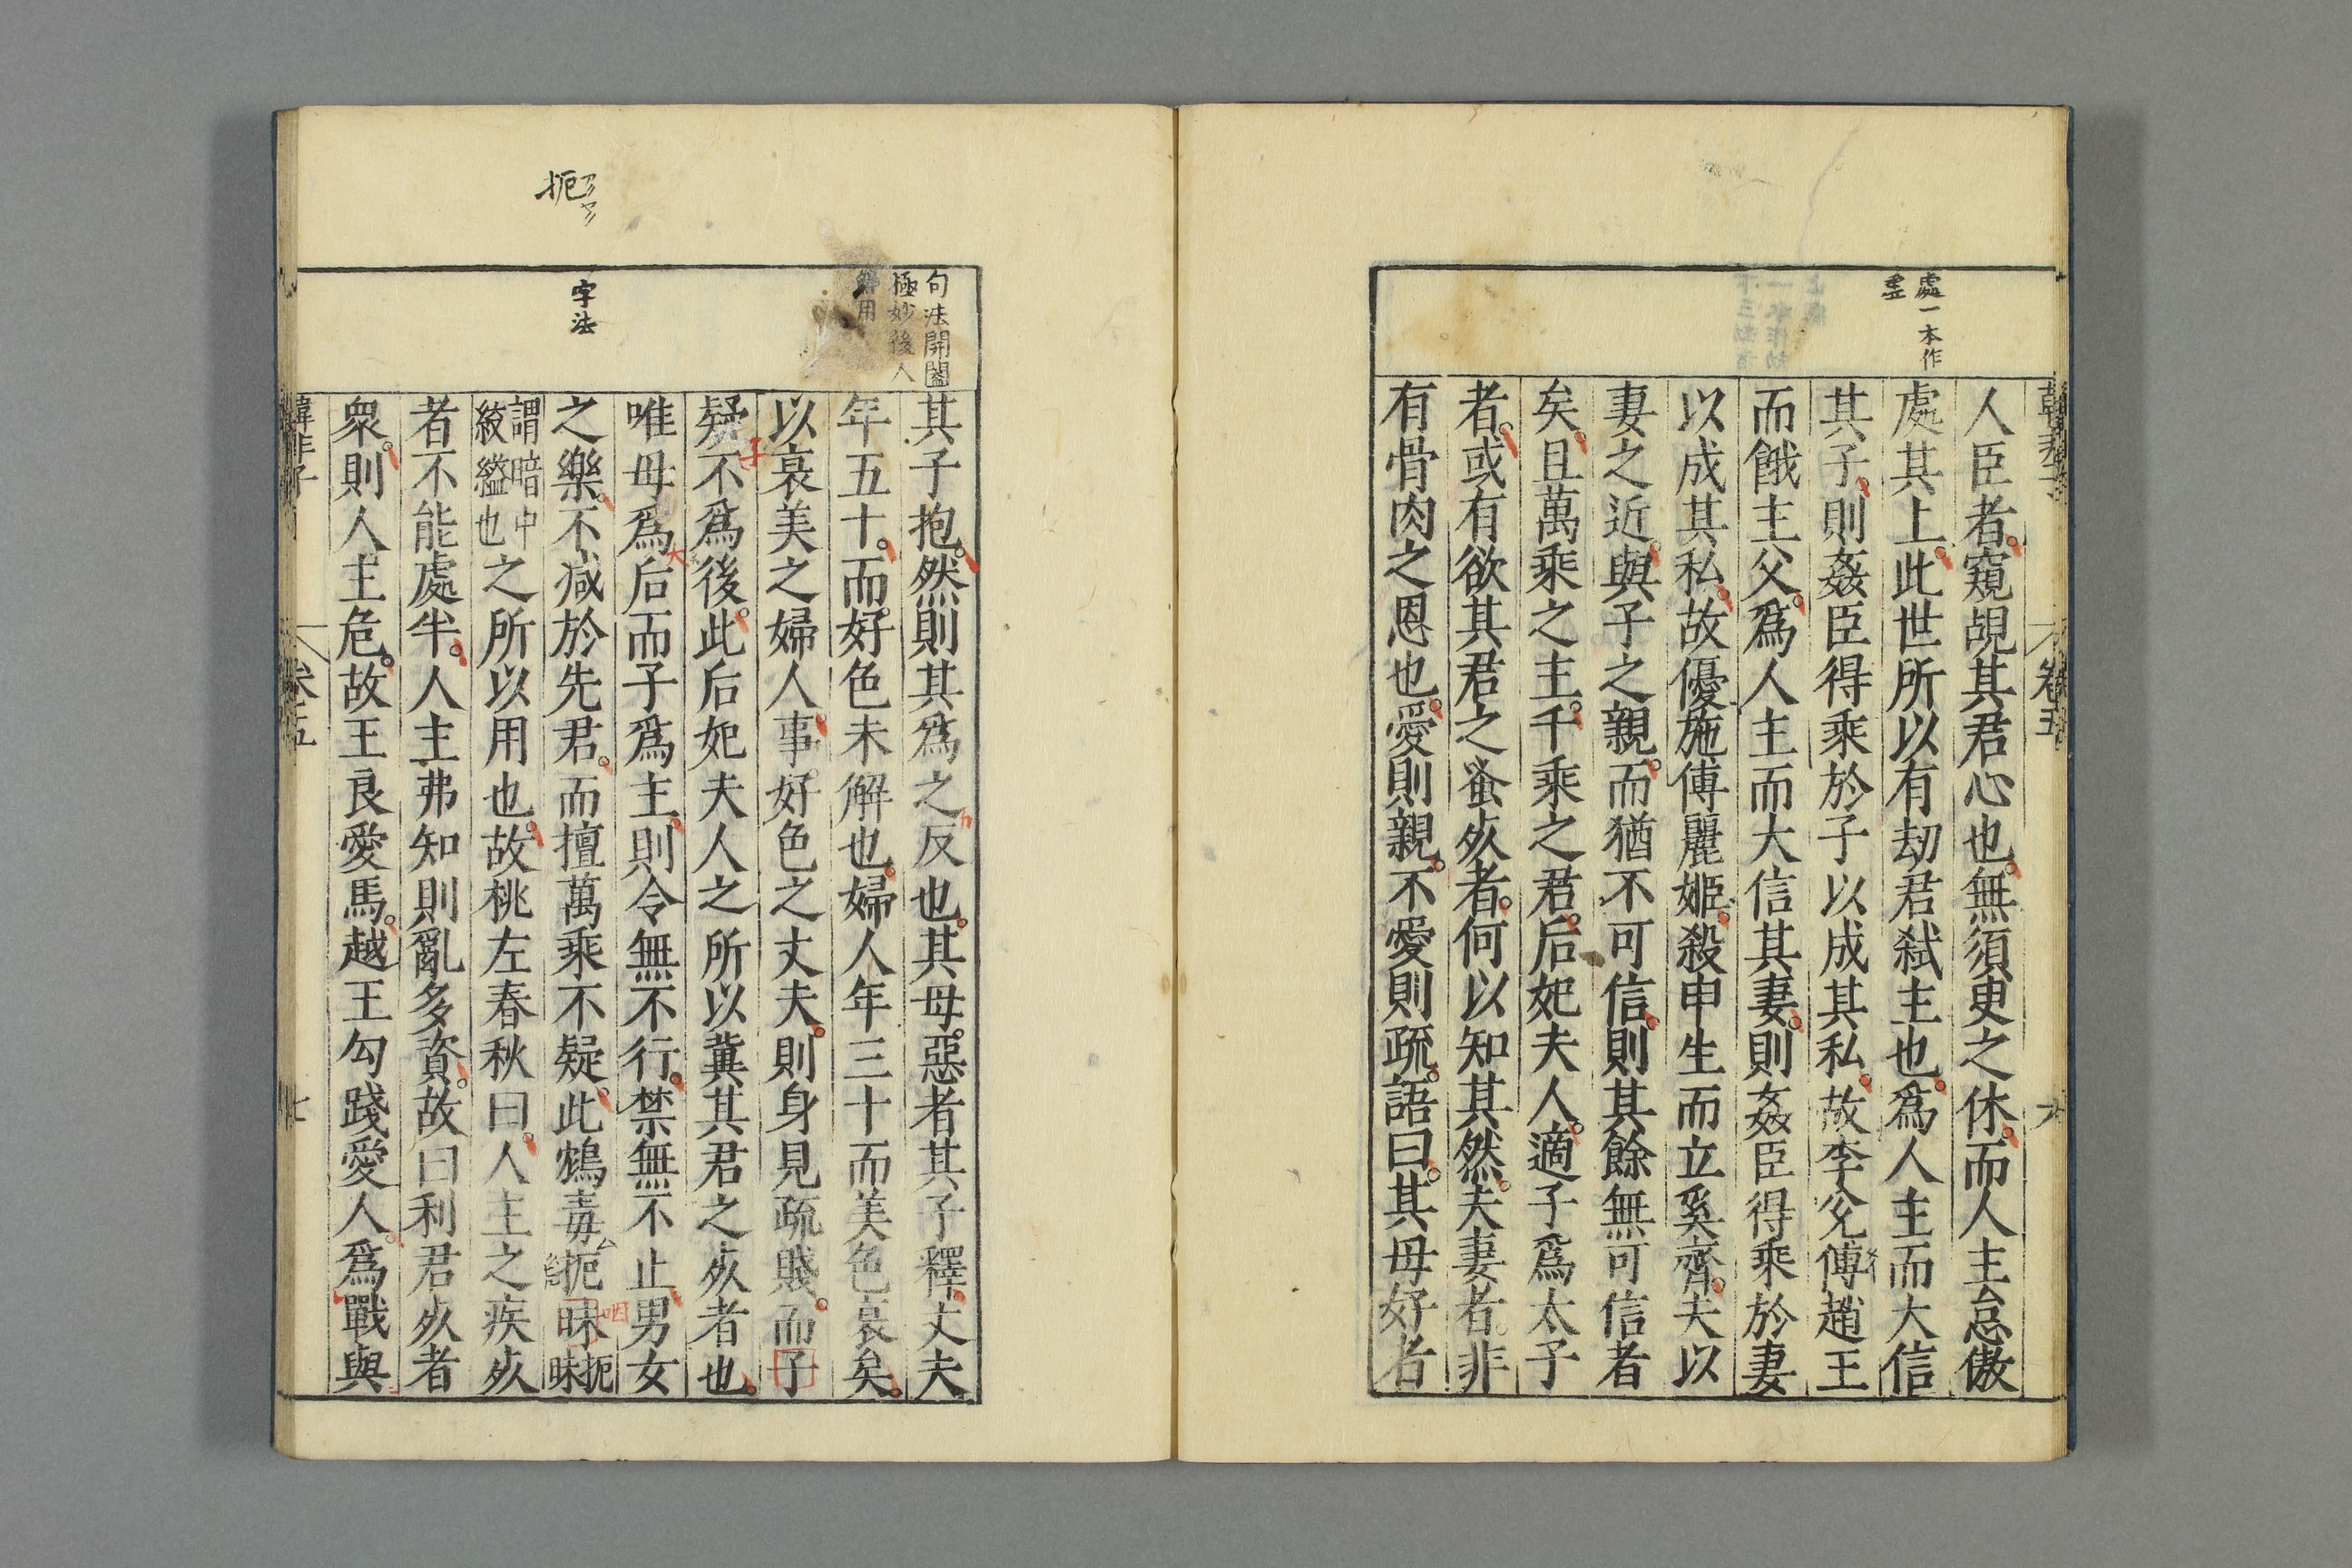 韓非子
卷五
六
處一本作
㙯
人臣者窺覘其君心也無須臾之休而人主怠傲
處其上此世所以有刧君弑主也爲人主而大信
其子則姦臣得乘於子以成其私故李兊傅趙王
而餓主父爲人主而大信其妻則姦臣得乘於妻
以成其私故優施傅麗姬殺申生而立奚齊夫以
妻之近與子之親而猶不可信則其餘無可信者
矣且萬乘之主千乘之君后妃夫人適子爲太子
者或有欲其君之蚤死者何以知其然夫妻者非
有骨肉之恩也愛則親不愛則疏語曰其母好者
句法開闔
極妙後人
用
其子抱然則其爲之反也其母惡者其子釋丈夫
年五十而好色未解也婦人年三十而美色衰矣
以衰美之婦人事好色之丈夫則身見疏賤而子
疑不爲後此后妃夫人之所以冀其君之死者也
唯母爲后而子爲主則令無不行禁無不止男女
字法
扼
之樂不减於先君而擅萬乘不疑此鴆毒扼昧扼昧
謂暗中絞縊也之所以用也故桃左春秋曰人主之疾死
者不能處半人主弗知則亂多資故曰利君死者
衆則人主危故王良愛馬越王勾踐愛人爲戰與
韓非子
卷五
七